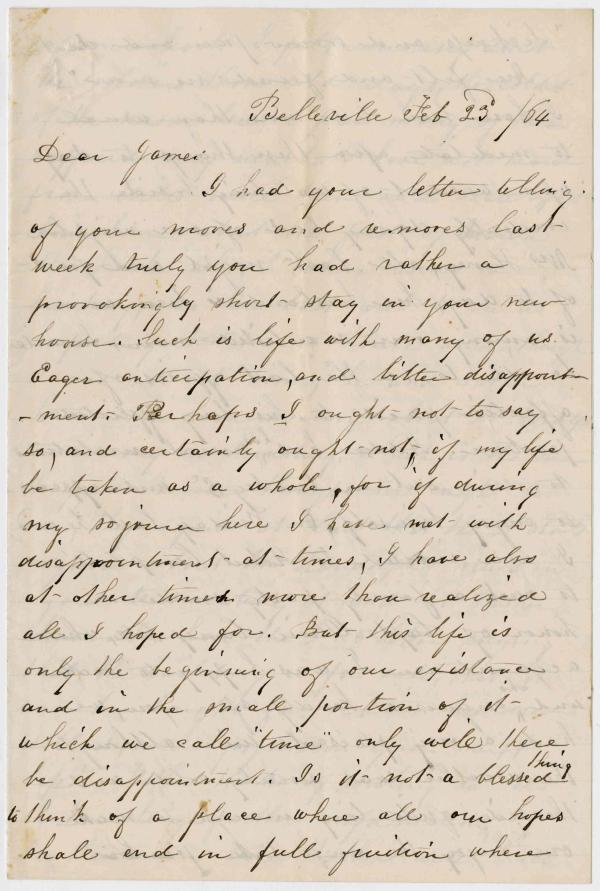 Belleville Feb 23d /64
Dear James
I had your letter telling
of your moves and removes last
week truly you had rather a
provokingly short stay in your new
house. Such is life with many of us.
Eager anticipation, and bitter disappoint-
-ment. Perhaps I ought not to say
so, and certainly ought not, if my life
be taken as a whole, for if during
my sojourn here I have met with
disappointment at times, I have also
at other times more than realized
all I hoped for. But this life is
only the beginning of our existance
and in the small portion of it
which we call "time" only will there
be disappointment. Is it not a blessed thing
to think of a place where all our hopes
shall end in full fruition where